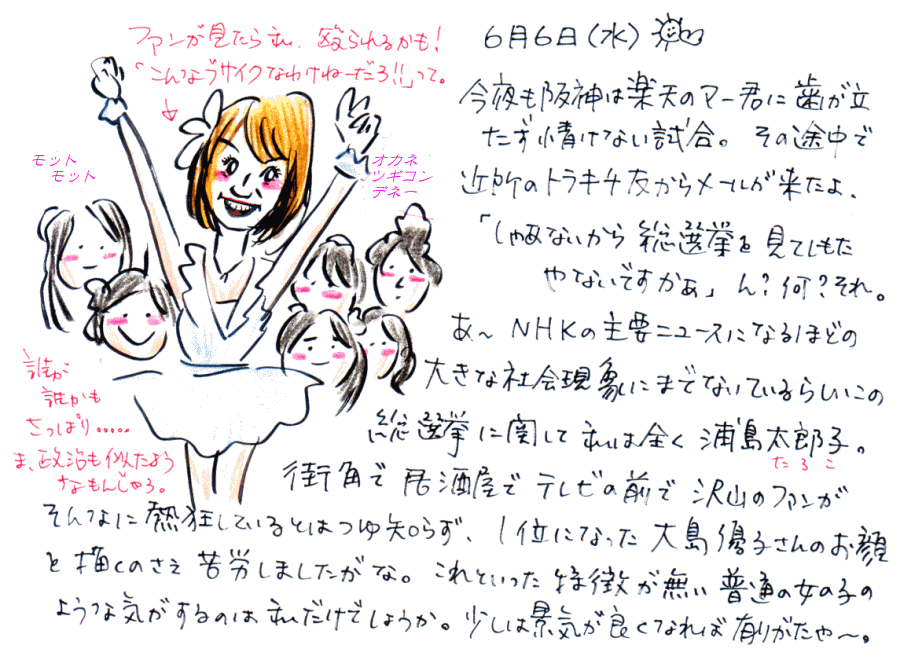 ファンが見たら私、殴られるかも!
「こんなブサイクなわけねーだろ!!」って。
モット
モット
オカネ
ツギコン
デネー
誰が
誰かも
さっぱり.....
ま、政治も似たよう
なもんじゃろ。
6月6日(水)
今夜も阪神は楽天のマー君に歯が立
たず情けない試合。その途中で
近所のトラキチ友からメールが来たよ、
「しゃあないから総選挙を見てしもた
やないですかぁ」ん?何?それ。
あ〜NHKの主要ニュースになるほどの
大きな社会現象にまでなっているらしいこの
総選挙に関して私は全く浦島太郎子。
たろこ
街角で居酒屋でテレビの前で沢山のファンが
そんなに熱狂しているとはつゆ知らず、1位になった大島優子さんのお顔
を描くのさえ苦労しましたがな。これといった特徴が無い普通の女の子の
ような気がするのは私だけでしょうか。少しは景気が良くなれば有りがたや〜。